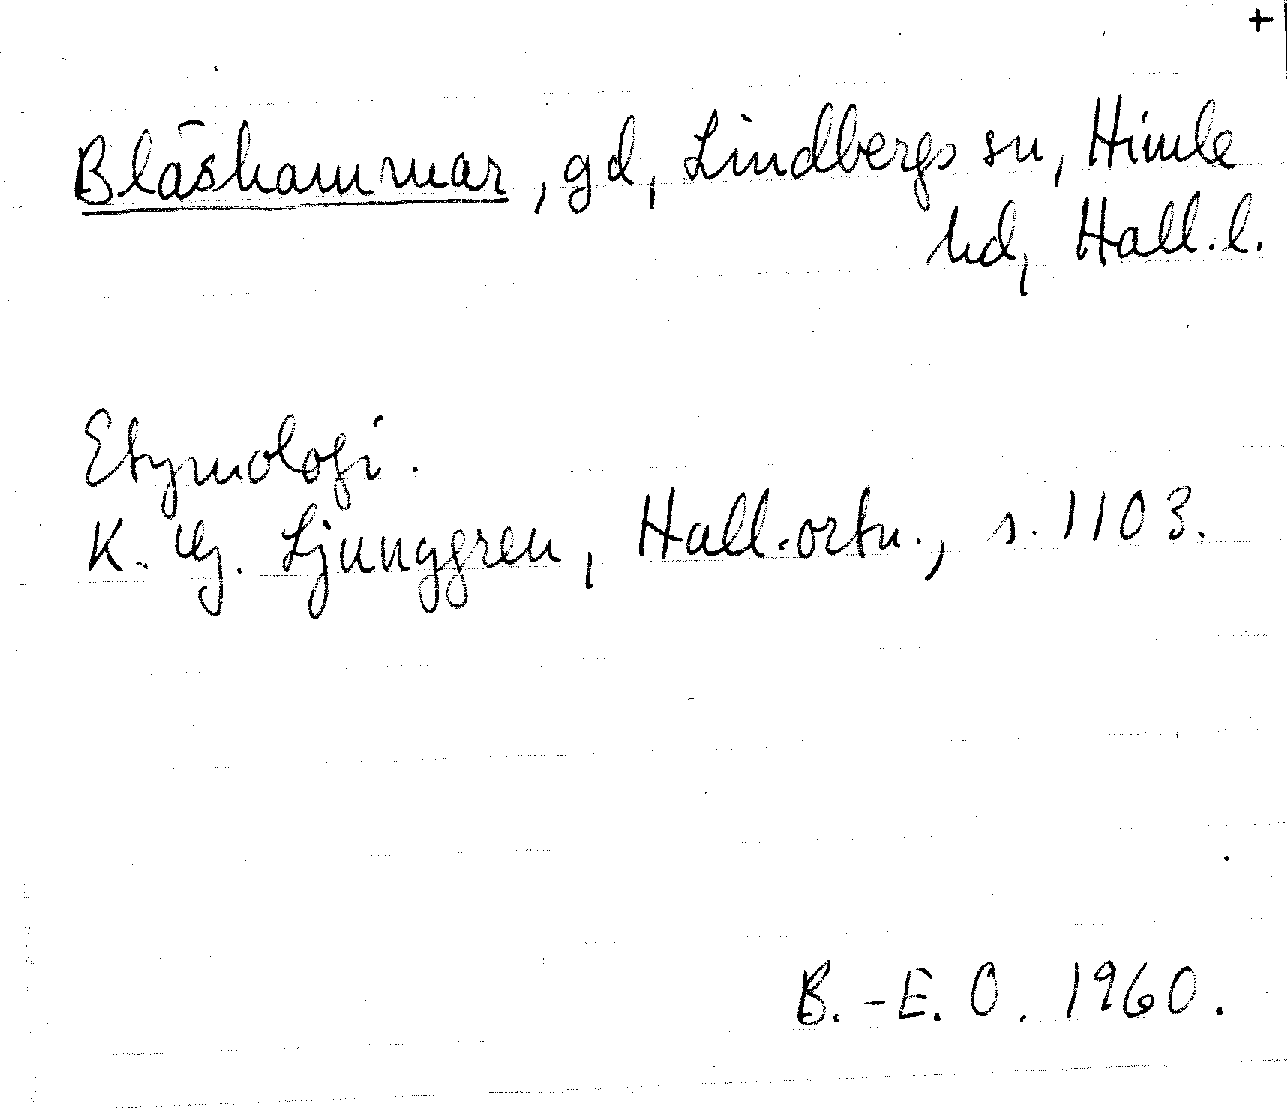 +
Bläshammar, gd, Lindbergs sn, Himle
hd, Hall. l.
Etymologi.
K. G. Ljunggren, Hall. ortn., s. 1103.
B.-E. O. 1960.